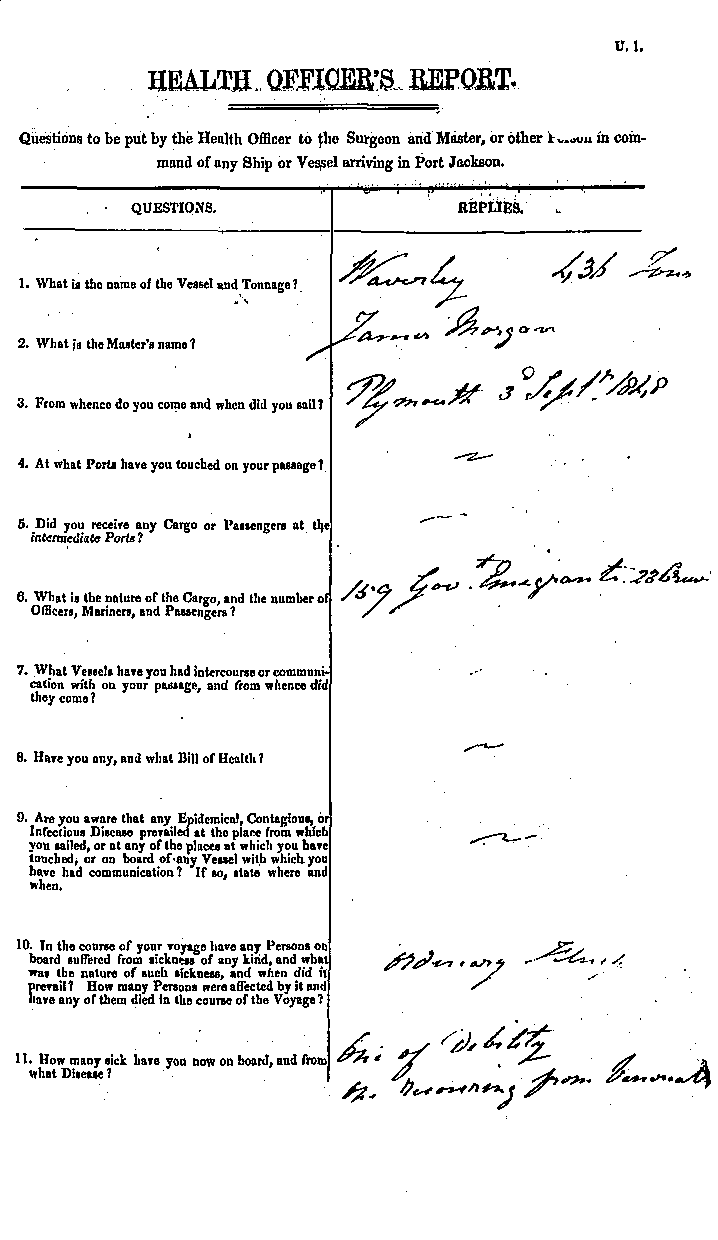 U. 1.
HEALTH OFFICER'S REPORT.
Questions to be put by the Health Officer to the Surgeon and Master, or other Person in com-
mand of any Ship or Vessel arriving in Port Jackson.
QUESTIONS.
REPLIES.
1. What is the name of the Vessel and Tonnage?
Waverley 436 Tons
2. What is the Master's name?
James Morgan
3. From whence do you come and when did you sail?
Plymouth 3d Septr. 1848
4. At what Ports have you touched on your passage?
~
5. Did you receive any Cargo or Passengers at the
intermediate Ports?
—
6. What is the nature of the Cargo, and the number of
Officers, Mariners, and Passengers?
159 Govt. Emigrants. 23 Crew
7. What Vessels have you had intercourse or communi-
cation with on your passage, and from whence did
they come?
8. Have you any, and what Bill of Health?
~
9. Are you aware that any Epidemical, Contagious, or
Infectious Disease prevailed at the place from which
you sailed, or at any of the places at which you have
touched, or on board of any Vessel with which you
have had communication? If so, state where and
when.
~
10. In the course of your voyage have any Persons on
board suffered from sickness of any kind, and what
was the nature of such sickness, and when did it
prevail? How many Persons were affected by it and
have any of them died in the course of the Voyage?
ordinary
11. How many sick have you now on board, and from
what Disease?
One of Debility
One recovering from